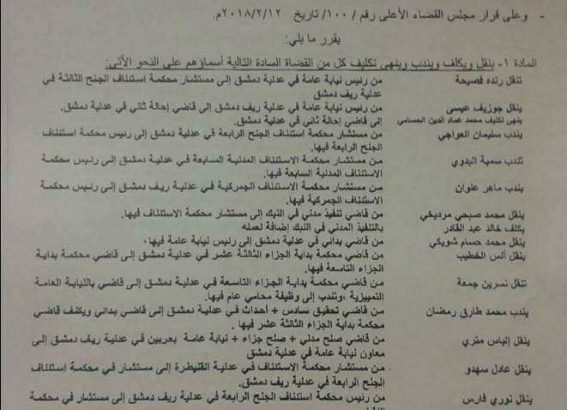 - وعلى قرار مجلس القضاء الأعلى رقم /١٠٠/ تاريخ ٢٠١٨/٢/١٢م.
يقرر ما يلي:
المادة ١- ينقل ويكلف ويندب وينهى تكليف كل من القضاة السادة التالية أسماؤهم على النحو الآتي:
تنقل رنده فصيحة من رئيس نيابة عامة في عدلية دمشق إلى مستشار محكمة استئناف الجنح الثالثة في
عدلية ريف دمشق
ينقل جوزيف عيسى من رئيس نيابة عامة في عدلية ريف دمشق إلى قاضي إحالة ثاني في عدلية دمشق.
ينهى تكليف محمد عماد الدين الحسامي إلى قاضي إحالة ثاني في عدلية دمشق.
يندب سليمان العواجي من مستشار محكمة استئناف الجنح الرابعة في عدلية دمشق إلى رئيس محكمة استئناف
الجنح الرابعة فيها.
تندب سمية البدوي من مستشار محكمة الاستئناف المدنية السابعة في عدلية دمشق إلى رئيس محكمة
الاستئناف المدنية السابعة فيها.
يندب ماهر علوان من مستشار محكمة الاستئناف الجمركية في عدلية ريف دمشق إلى رئيس محكمة
الاستئناف الجمركية فيها.
ينقل محمد صبحي مرديخي من قاضي تنفيذ مدني في النبك إلى مستشار محكمة الاستئناف فيها.
يكلف خالد عبد القادر بالتنفيذ المدني في النبك إضافة لعمله
ينقل محمد حسام شويكي من قاضي بدائي في عدلية دمشق إلى رئيس نيابة عامة فيها.
ينقل أنس الخطيب من قاضي محكمة بداية الجزاء الثالثة عشر في عدلية دمشق إلى قاضي محكمة بداية
الجزاء التاسعة فيها.
تنقل نسرين جمعة من قاضي محكمة بداية الجزاء التاسعة في عدلية دمشق إلى قاضي بالنيابة العامة
التمييزية، وتندب إلى وظيفة محامي عام فيها.
يندب محمد طارق رمضان من قاضي تحقيق سادس + أحداث في عدلية دمشق إلى قاضي بدائي ويكلف قاضي
محكمة بداية الجزاء الثالثة عشر فيها.
ينقل إلياس متري من قاضي صلح مدني + صلح جزاء + نيابة عامة بعربين في عدلية ريف دمشق إلى
معاون نيابة عامة في عدلية دمشق
ينقل عادل سهدو من مستشار محكمة الاستئناف في عدلية القنيطرة إلى مستشار في محكمة استئناف
الجنح الرابعة في عدلية ريف دمشق.
ينقل نوري فارس من مستشار محكمة استئناف الجنح الرابعة في عدلية ريف دمشق إلى مستشار في محكمة